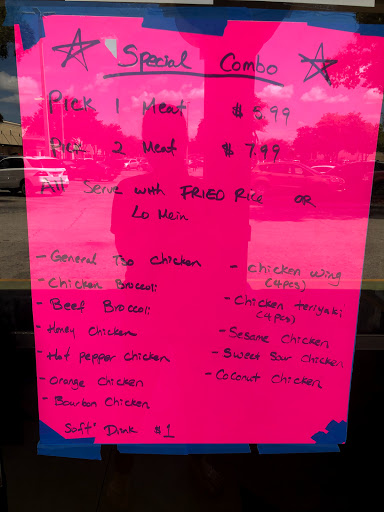 Special Combo
Pick 1 Meat $5.99
Pick 2 Meat $7.99
All Serve with FRIED Rice OR
Lo Mein
- General Tso Chicken
- Chicken Broccoli
- Beef Broccoli
- Honey Chicken
- Hot pepper chicken
- Orange Chicken
- Bourbon Chicken
- Chicken wing
(4pcs)
- Chicken teriyaki
(4pcs)
- Sesame Chicken
- Sweet Sour Chicken
- Coconut Chicken
Soft Dink $1